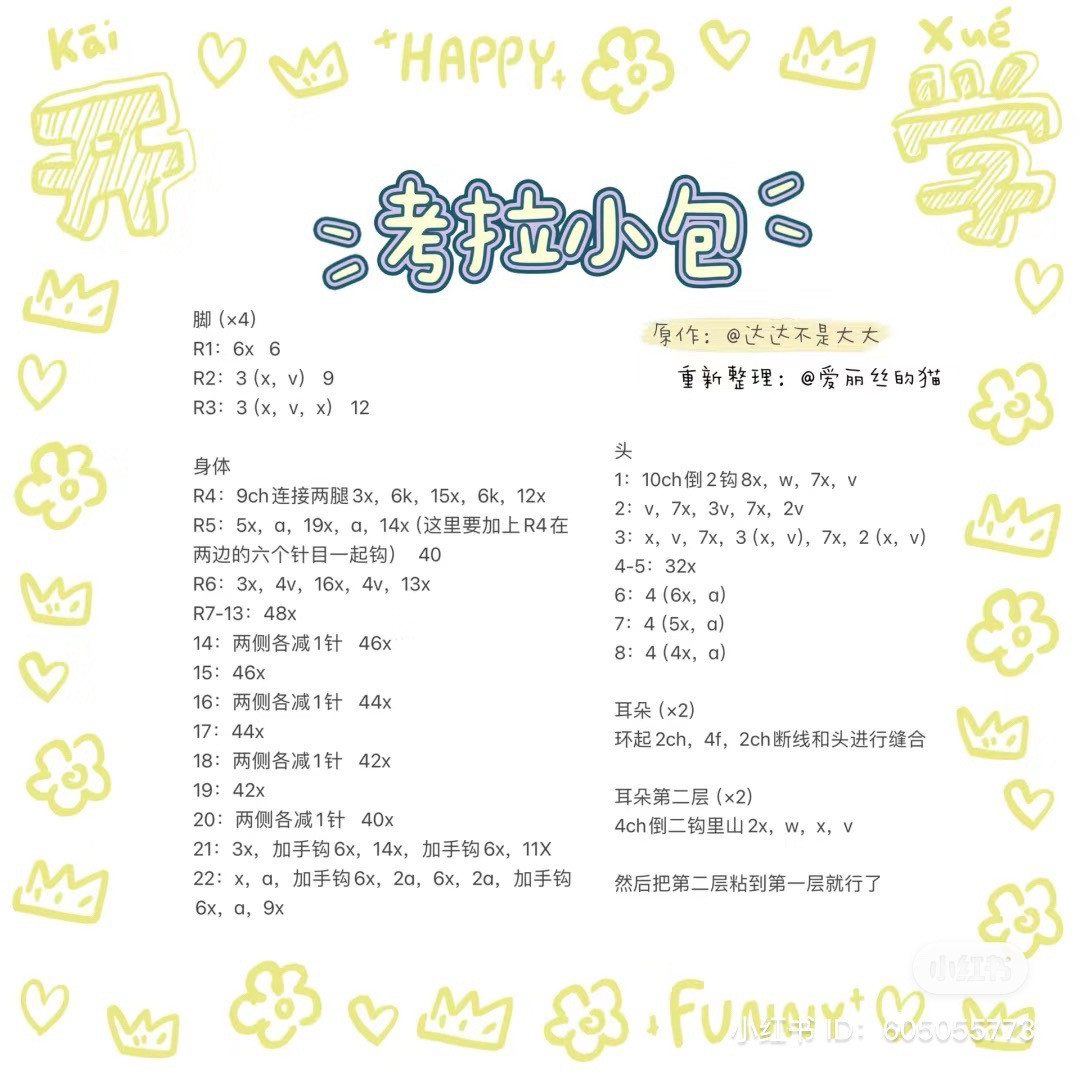 Kāi
开
HAPPY
Xué
学
考拉小包
原作：@达达不是大大
重新整理：@爱丽丝的猫
脚（×4）
R1：6x 6
R2：3（x，v） 9
R3：3（x，v，x） 12
身体
R4：9ch连接两腿3x，6k，15x，6k，12x
R5：5x，a，19x，a，14x（这里要加上R4在
两边的六个针目一起钩） 40
R6：3x，4v，16x，4v，13x
R7-13：48x
14：两侧各减1针 46x
15：46x
16：两侧各减1针 44x
17：44x
18：两侧各减1针 42x
19：42x
20：两侧各减1针 40x
21：3x，加手钩6x，14x，加手钩6x，11X
22：x，a，加手钩6x，2a，6x，2a，加手钩
6x，a，9x
头
1：10ch倒2钩8x，w，7x，v
2：v，7x，3v，7x，2v
3：x，v，7x，3（x，v），7x，2（x，v）
4-5：32x
6：4（6x，a）
7：4（5x，a）
8：4（4x，a）
耳朵（×2）
环起2ch，4f，2ch断线和头进行缝合
耳朵第二层（×2）
4ch倒二钩里山2x，w，x，v
然后把第二层粘到第一层就行了
小红书
FUNNY
小红书 ID：605055773